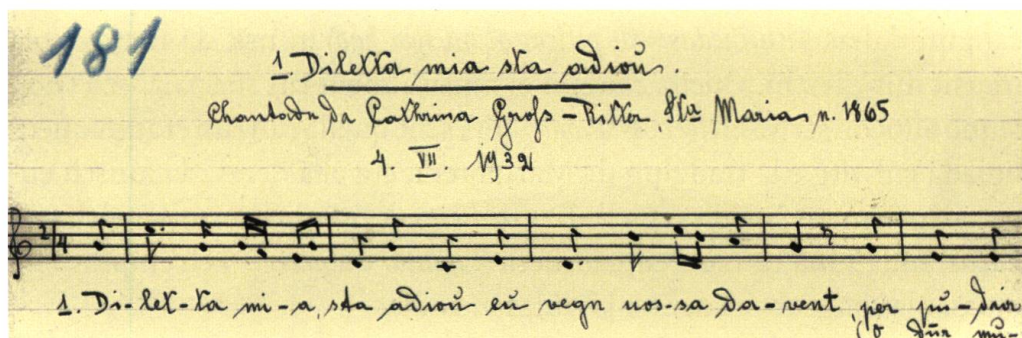 181
1. Diletta mia sta adioü.
Chantada da Cathrina Groſs-Ritter, Sta Maria n. 1865
4. VII. 1932
2/4
1. Di-let-ta mi-a sta adioü eü vegn uos-sa da-vent, per pü-dair
o dür mü-